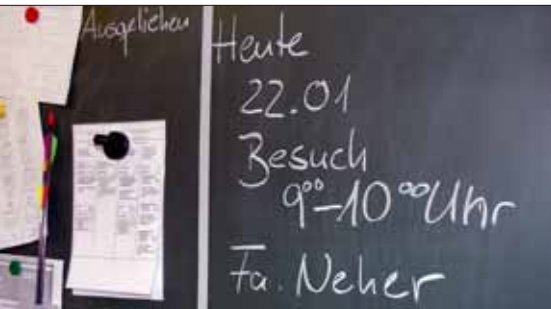 Ausgeliehen
Heute
22.01
Besuch
9⁰⁰-10⁰⁰ Uhr
Fa. Neher